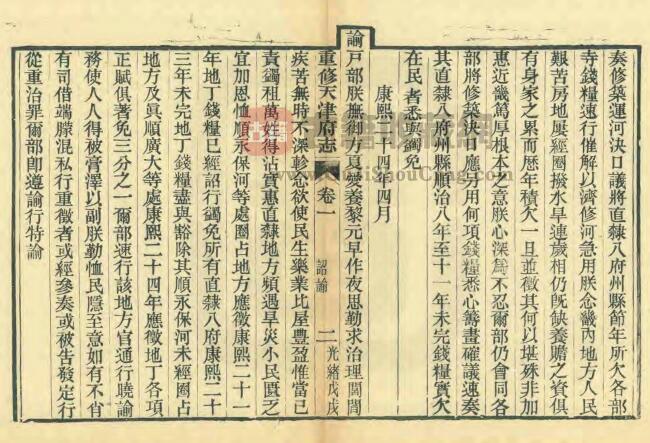 奏修築運河決口議將直隸八府州縣節年所欠各部
寺錢糧速行催解以濟修河急用朕念畿內地方人民
艱苦房地屢經圈撥水旱連歲相仍旣缺養贍之資俱
有身家之累而歷年積欠一旦並徵其何以堪殊非加
惠近畿篤厚根本之意朕心深爲不忍爾部仍會同各
部將修築決口應另用何項錢糧悉心籌畫確議速奏
其直隸八府州縣順治八年至十一年未完錢糧實欠
在民者悉與蠲免
康熙二十四年四月
諭戶部朕撫御方夏愛養黎元早作夜思勤求治理閭閻
重修天津府志 卷一 詔諭 二 光緒戊戌
疾苦無時不深軫念欲使民生樂業比屋豐盈惟當已
責蠲租萬姓得沾實惠直隸地方頻遇旱災小民匱乏
宜加恩恤順永保河等處圈占地方應徵康熙二十一
年地丁錢糧已經詔行蠲免所有直隸八府康熙二十
三年未完地丁錢糧盡與豁除其順永保河未經圈占
地方及眞順廣大等處康熙二十四年應徵地丁各項
正賦俱著免三分之一爾部速行該地方官通行曉諭
務使人人得被膏澤以副朕勤恤民隱至意如有不肖
有司借端朦混私行重徵者或經參奏或被告發定行
從重治罪爾部卽遵諭行特諭